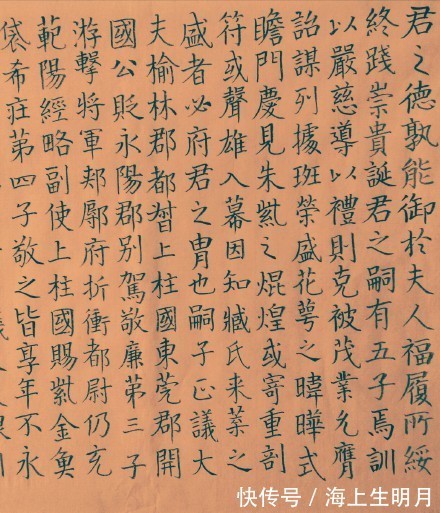 君之德孰能御於夫人福履所綏
終踐崇貴誕君之嗣有五子焉訓
以嚴慈導以禮則克被茂業允膺
詒謀列據班榮盛花萼之暐曄式
瞻門慶見朱紱之焜煌或寄重剖
符或聲雄入幕因知臧氏来菜之
盛者必府君之冑也嗣子正議大
夫榆林郡都督上柱國東莞郡開
國公貶永陽郡別駕敬廉第三子
游擊將軍郟鄏府折衝都尉仍充
範陽經略副使上柱國賜紫金魚
袋希莊第四子敬之皆享年不永
快传号 / 海上生明月